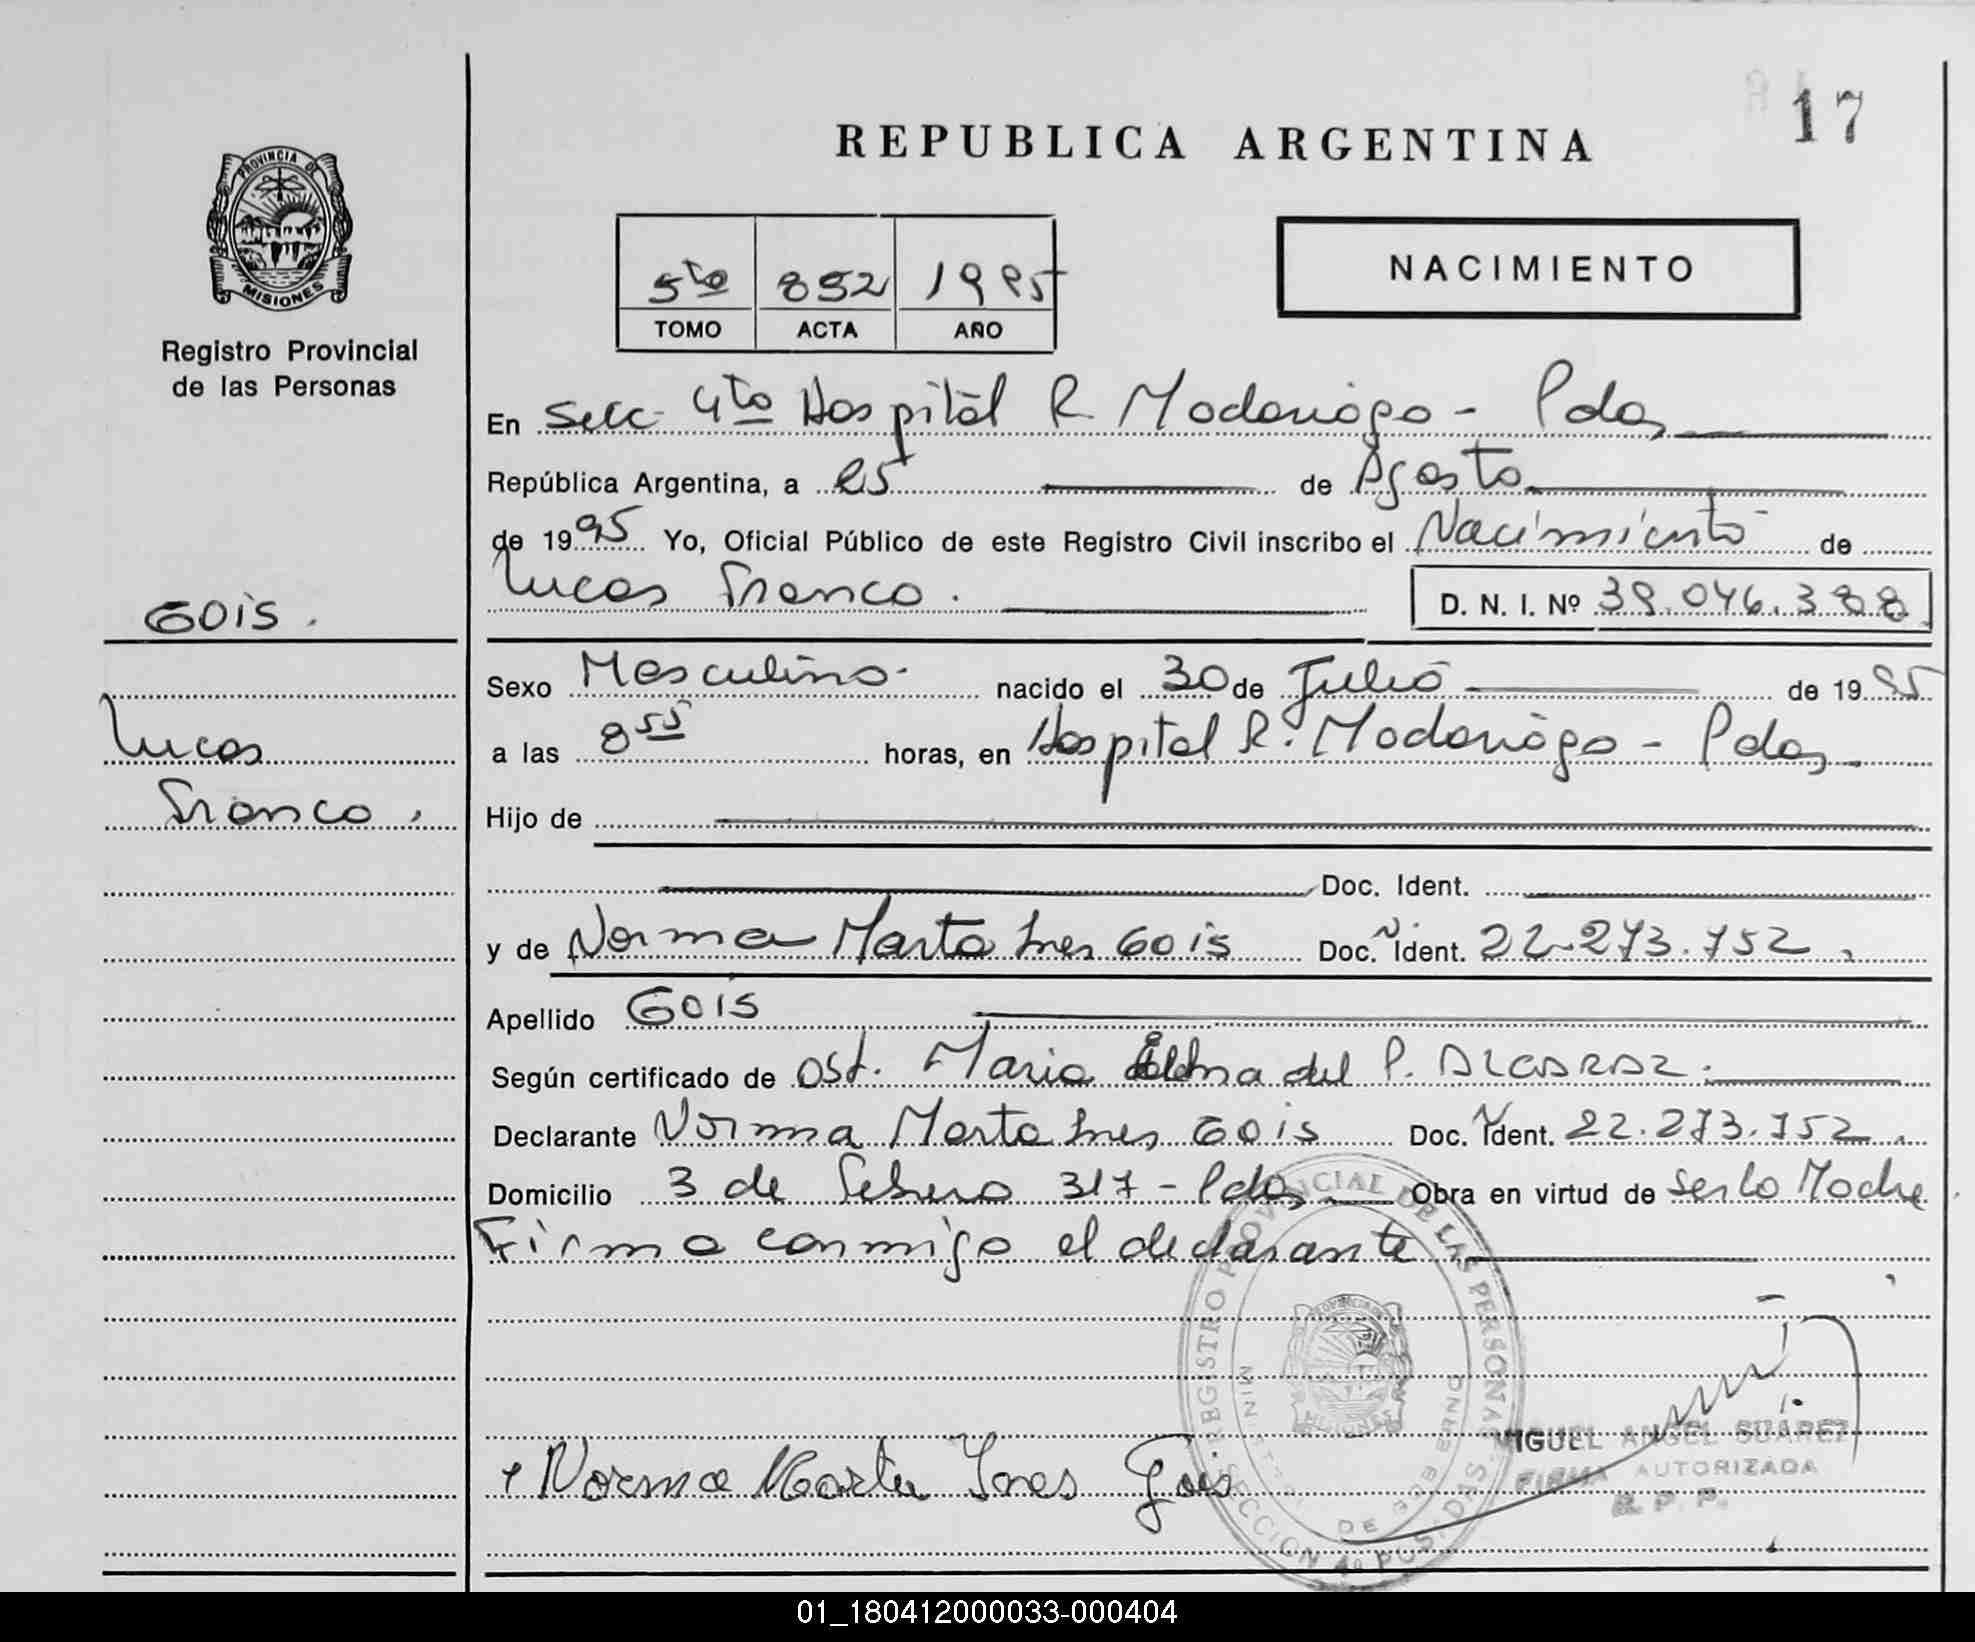 17
REPUBLICA ARGENTINA
PROVINCIA DE
MISIONES
Registro Provincial
de las Personas
5to 852 1995
TOMO ACTA AÑO
NACIMIENTO
En Secc. 4to Hospital R. Madariaga - Pdas
República Argentina, a 25 de Agosto
de 1995 Yo, Oficial Público de este Registro Civil inscribo el Nacimiento de
Lucas Franco. D. N. I. Nº 39.046.388
GOIS.
Sexo Masculino. nacido el 30 de Julio de 1995
Lucas
a las 8 55 horas, en Hospital R. Madariaga - Pdas
Franco.
Hijo de
Doc. Ident.
y de Norma Marta Ines Gois Doc. Ident. 22.273.752.
Apellido GOIS
Según certificado de Ost. Maria del P. ALCARAZ.
Declarante Norma Marta Ines Gois Doc. Ident. 22.273.752.
Domicilio 3 de Febrero 317 - Pdas. Obra en virtud de ser la Madre
Firma conmigo el declarante
REGISTRO PROVINCIAL DE LAS PERSONAS
MINIST. DE GOBIERNO
SECCION 4a POSADAS
MISIONES
MIGUEL ANGEL SUAREZ
FIRMA AUTORIZADA
R. P. P.
Norma Marta Ines Gois
01_180412000033-000404